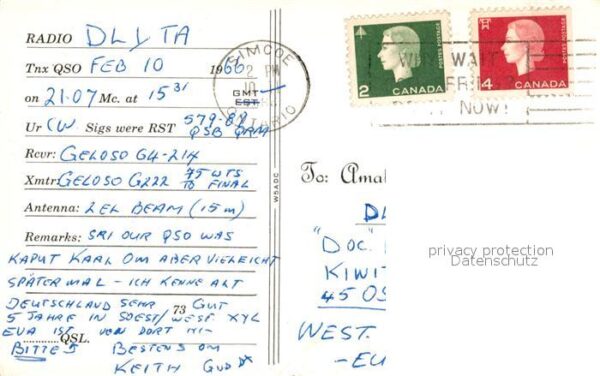 RADIO DL4TA
Tnx QSO FEB 10 1966
on 21.07 Mc. at 15 31 GMT EST
Ur CW Sigs were RST 579-89
QSB QRM
Rcvr: GELOSO G4-214
Xmtr: GELOSO G222 75 WTS
TO FINAL
Antenna: 2 EL BEAM (15 m)
Remarks: SRI OUR QSO WAS
KAPUT KARL OM ABER VIELEICHT
SPÄTER MAL - ICH KENNE ALT
DEUTSCHLAND SEHR 73 GUT
5 JAHRE IN SOEST/WESF XYL
EVA IST VON DORT HI-
BITTE QSL. BESTENS OM
KEITH
W5ADC
SIMCOE
2 PM
ONTARIO
WHY WAIT
NOW!
POSTES POSTAGE
2 CANADA
POSTES POSTAGE
4 CANADA
To: Amat
"DOC."
KIWIT
45 OS
WEST.
-EU
privacy protection
Datenschutz